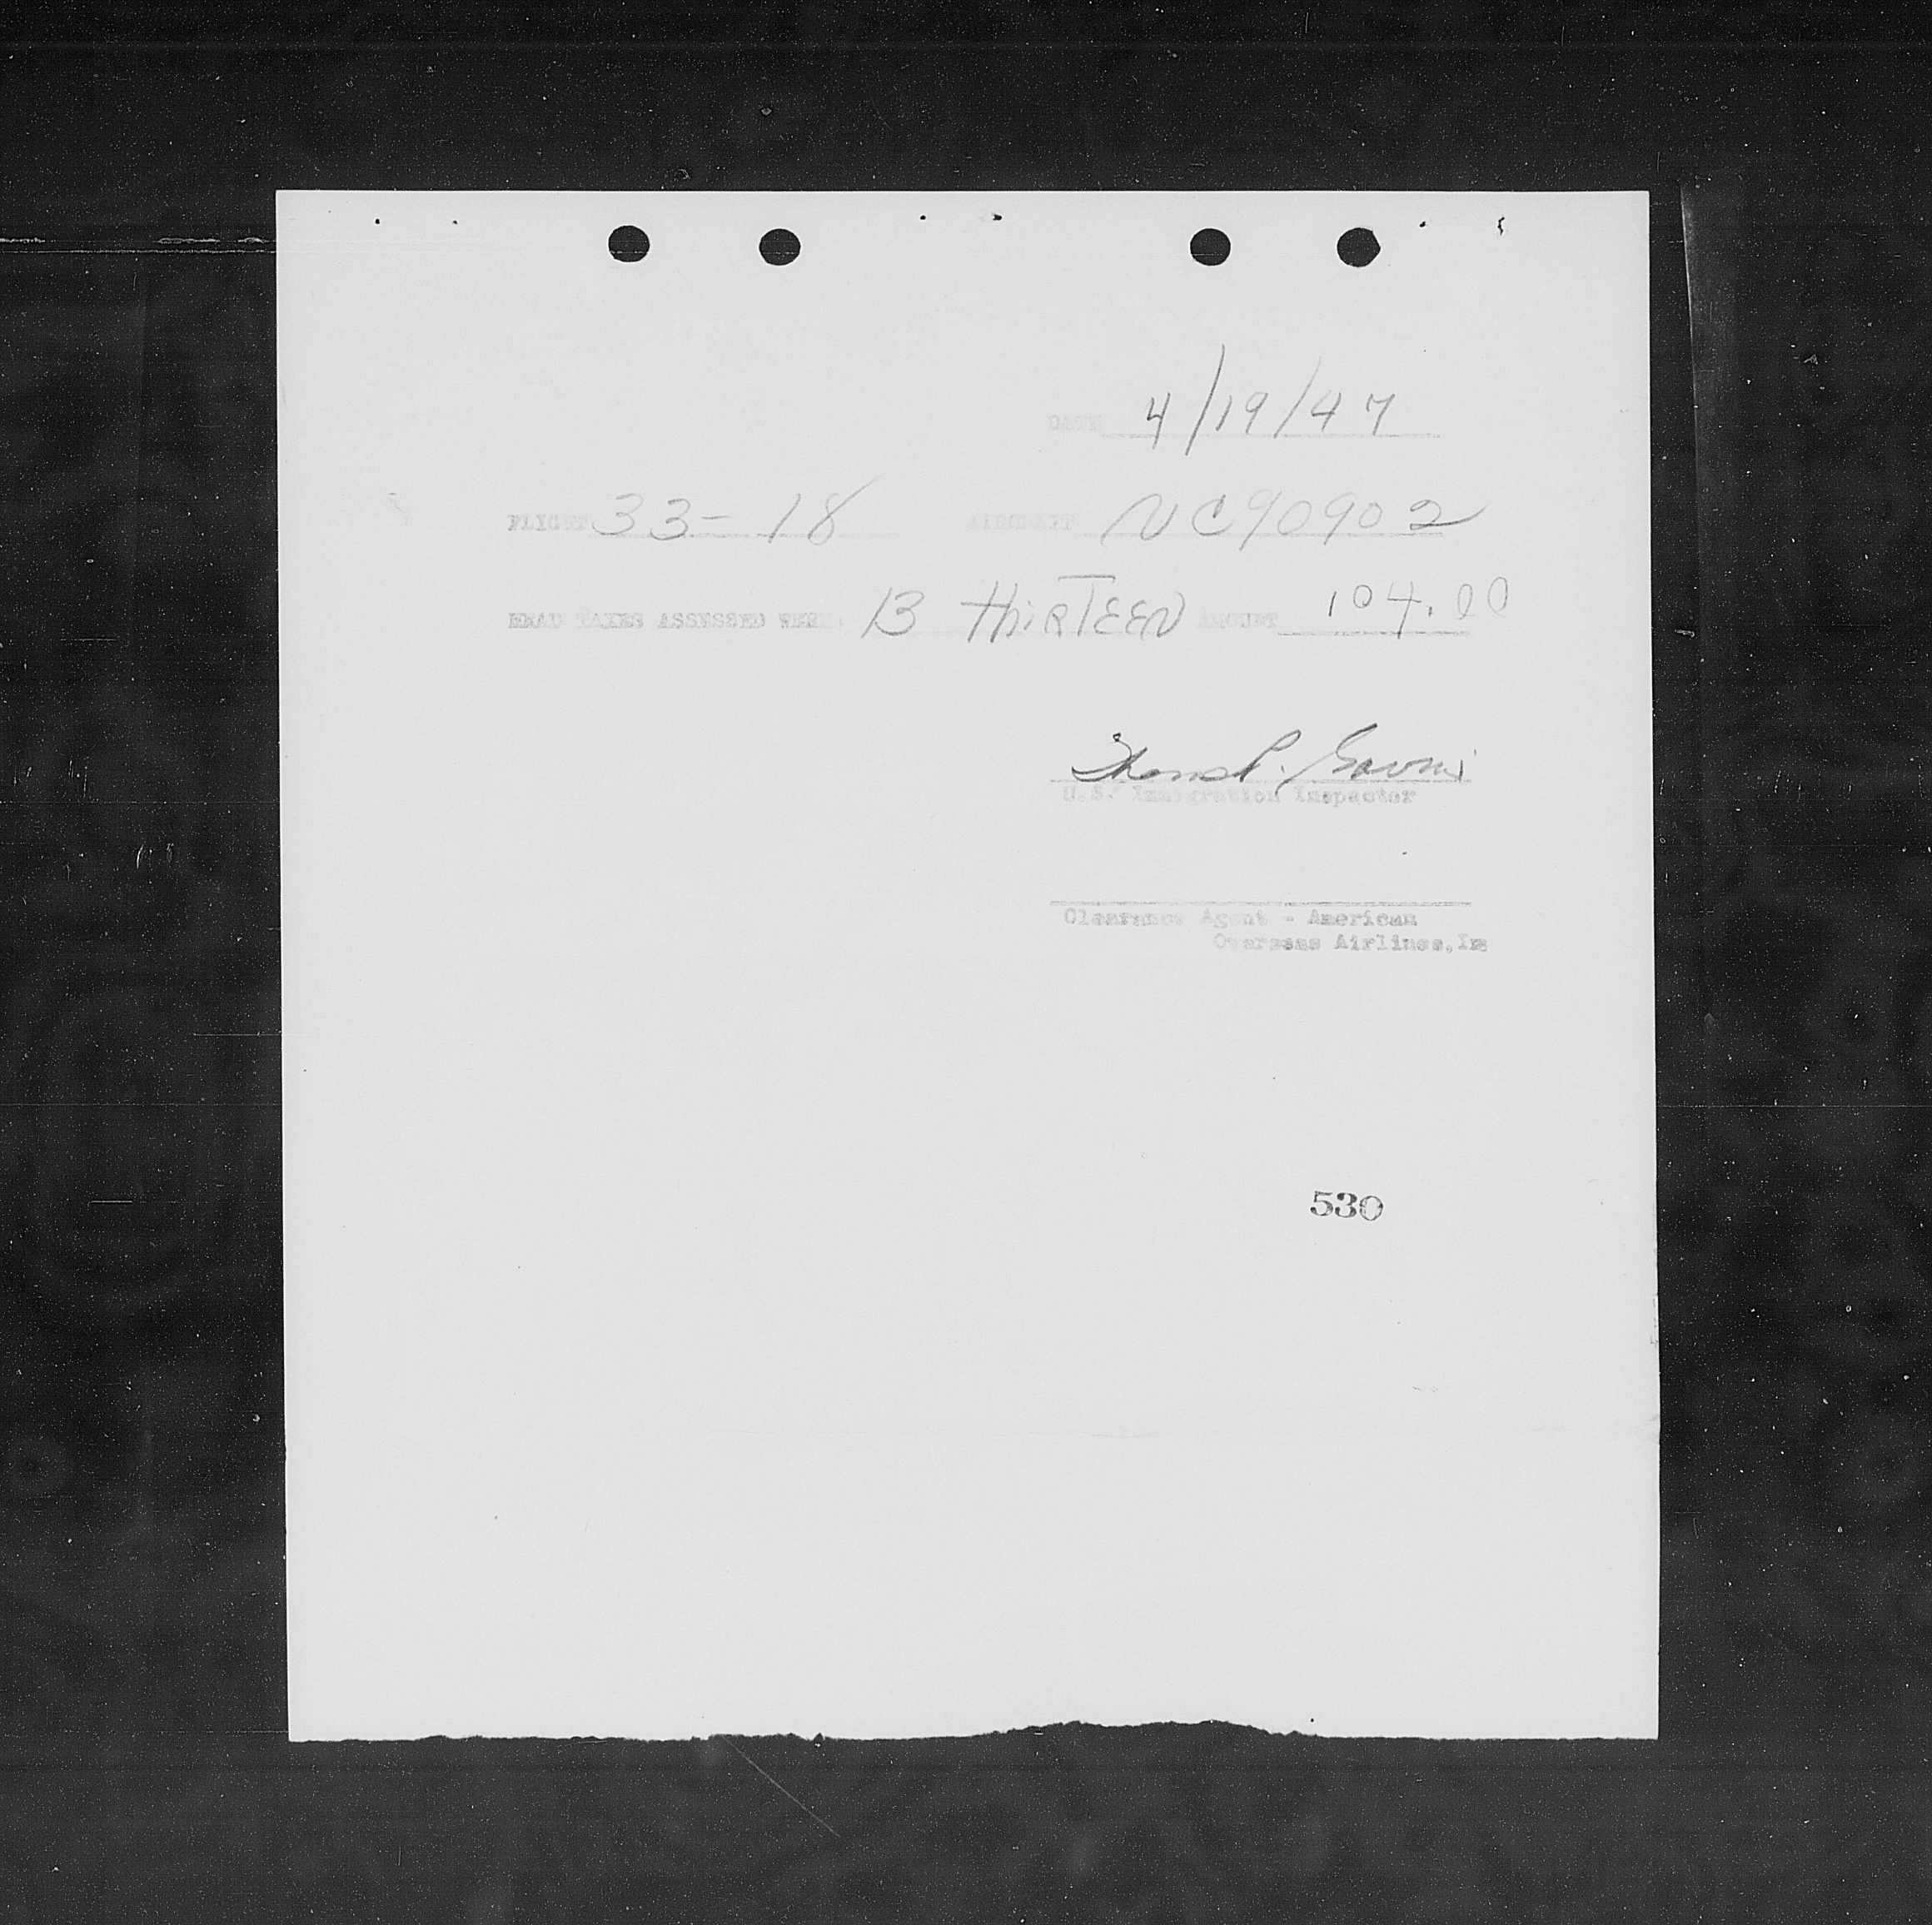 DATE 4/19/47
FLIGHT 33-18 AIRCRAFT NC90902
HEAD TAXES ASSESSED WERE 13 THIRTEEN AMOUNT 104.00
U.S. Immigration Inspector
Clearance Agent - American
Overseas Airlines, Inc
530